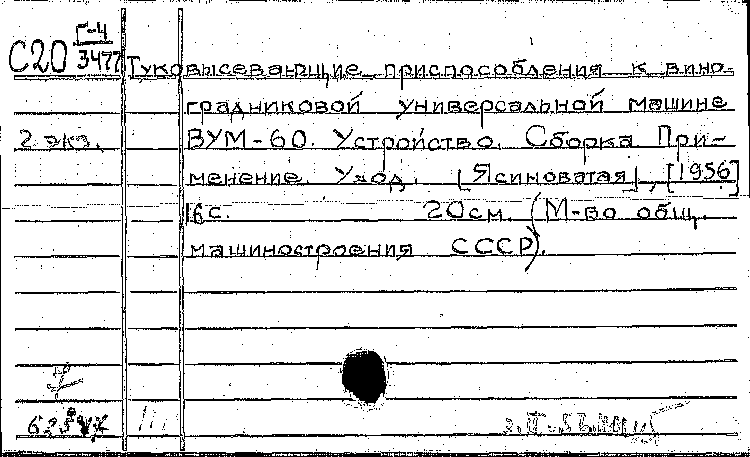 Г-4
С20 3477
Туковысевающие приспособления к вино-
градниковой универсальной машине
2 экз. ВУМ-60. Устройство. Сборка При-
менение. Уход. [Ясиноватая], [1956]
16 с. 20см. (М-во общ.
машиностроения СССР).